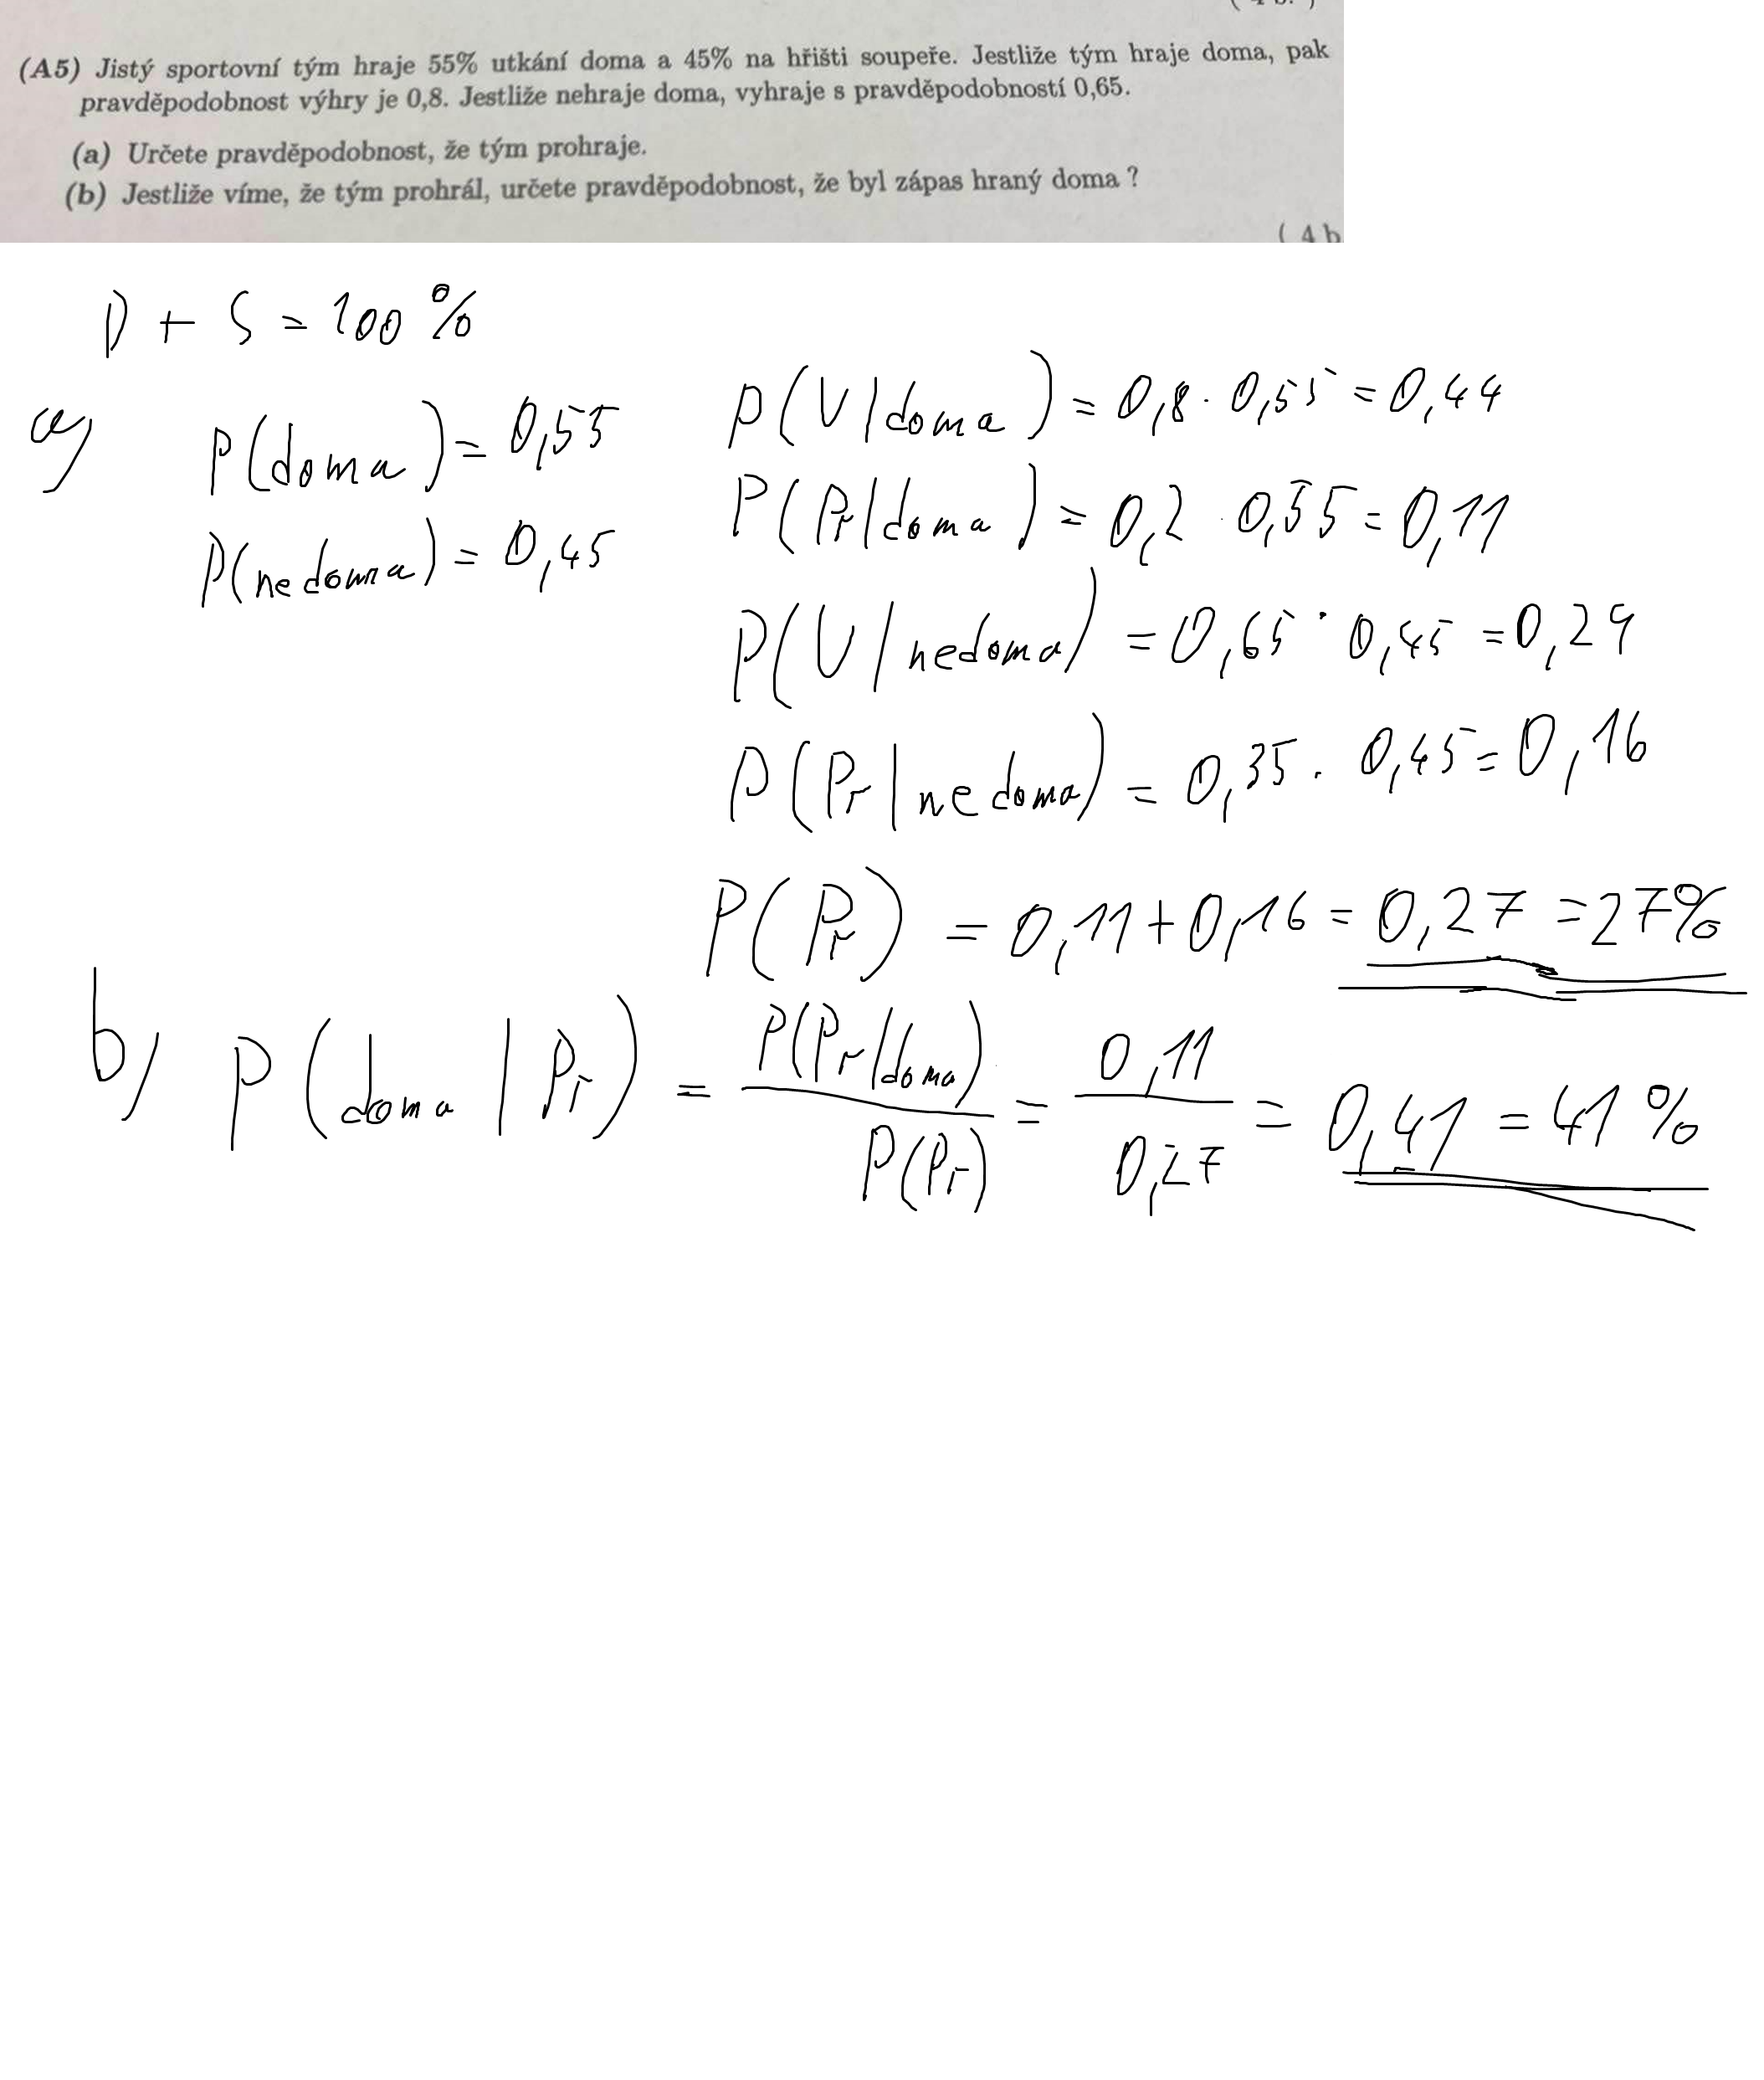 (A5) Jistý sportovní tým hraje 55% utkání doma a 45% na hřišti soupeře. Jestliže tým hraje doma, pak
pravděpodobnost výhry je 0,8. Jestliže nehraje doma, vyhraje s pravděpodobností 0,65.
(a) Určete pravděpodobnost, že tým prohraje.
(b) Jestliže víme, že tým prohrál, určete pravděpodobnost, že byl zápas hraný doma ?
( 4 b
D + S = 100 %
a)
P(doma) = 0,55
P(nedoma) = 0,45
P(V|doma) = 0,8 · 0,55 = 0,44
P(Pr|doma) = 0,2 · 0,55 = 0,11
P(V|nedoma) = 0,65 · 0,45 = 0,29
P(Pr|nedoma) = 0,35 · 0,45 = 0,16
P(Pr) = 0,11 + 0,16 = 0,27 = 27%
b) P(doma|Pr) = P(Pr|doma) / P(Pr) = 0,11 / 0,27 = 0,41 = 41 %